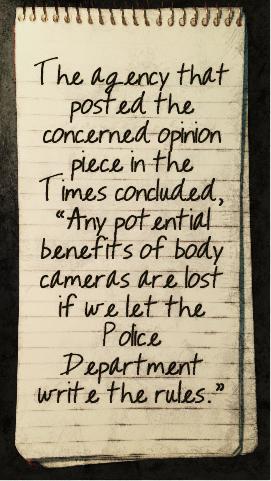 The agency that
posted the
concerned opinion
piece in the
Times concluded,
“Any potential
benefits of body
cameras are lost
if we let the
Police
Department
write the rules.”